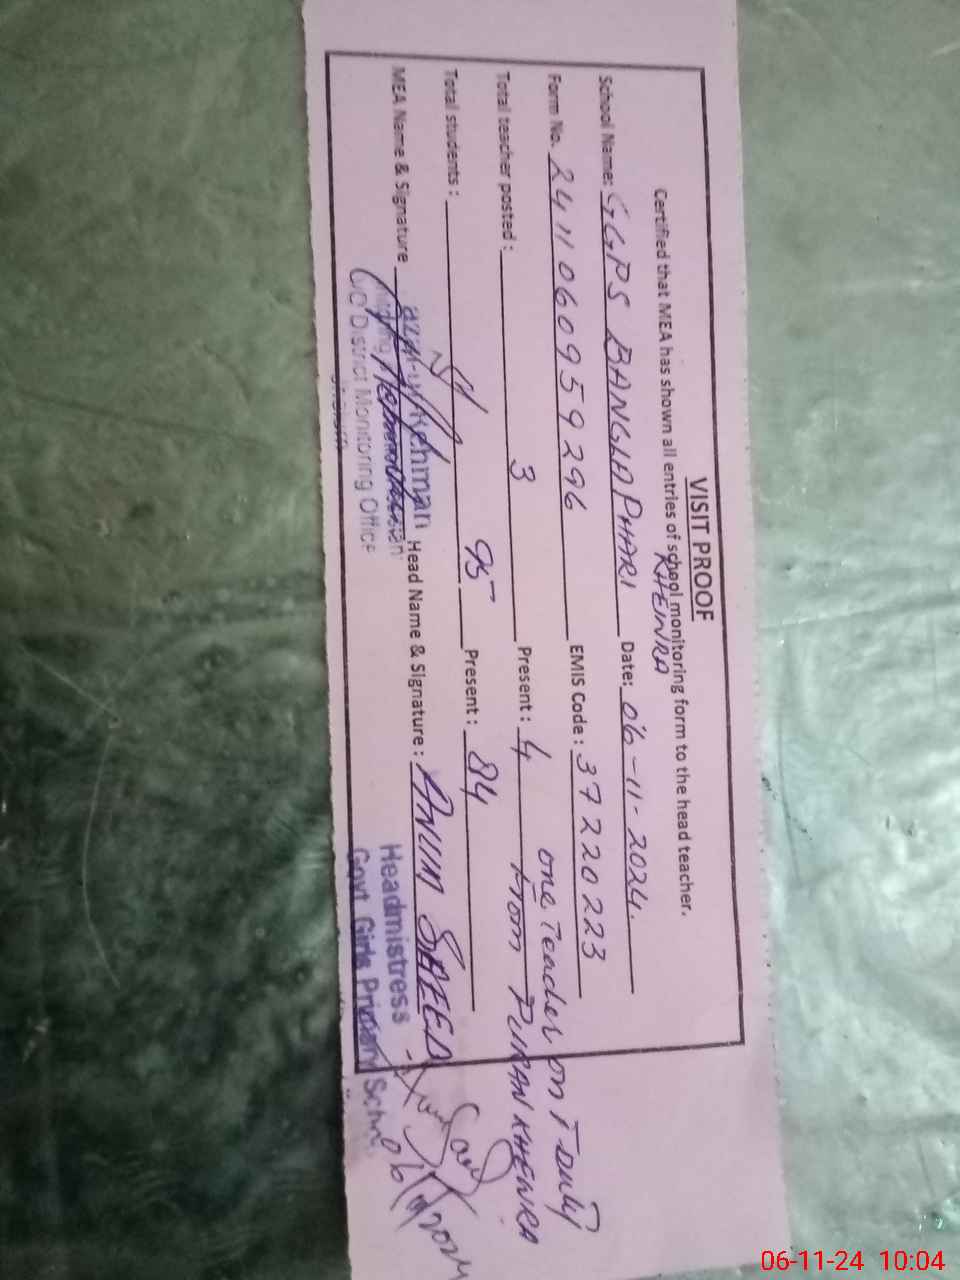 VISIT PROOF
Certified that MEA has shown all entries of school monitoring form to the head teacher.
KHEINRA
School Name: GGPS BANGLA PHARI Date: 06-11-2024.
Form No. 2411060959296 EMIS Code: 37220223
one Teacher on T duty
Total teacher posted : 3 Present : 4 from PURAN KHENRA
Total students : 95 Present : 84
MEA Name & Signature Head Name & Signature : ANUM SAEED
Rehman
District Monitoring Office
Headmistress
Govt. Girls Primary
06-11-24 10:04